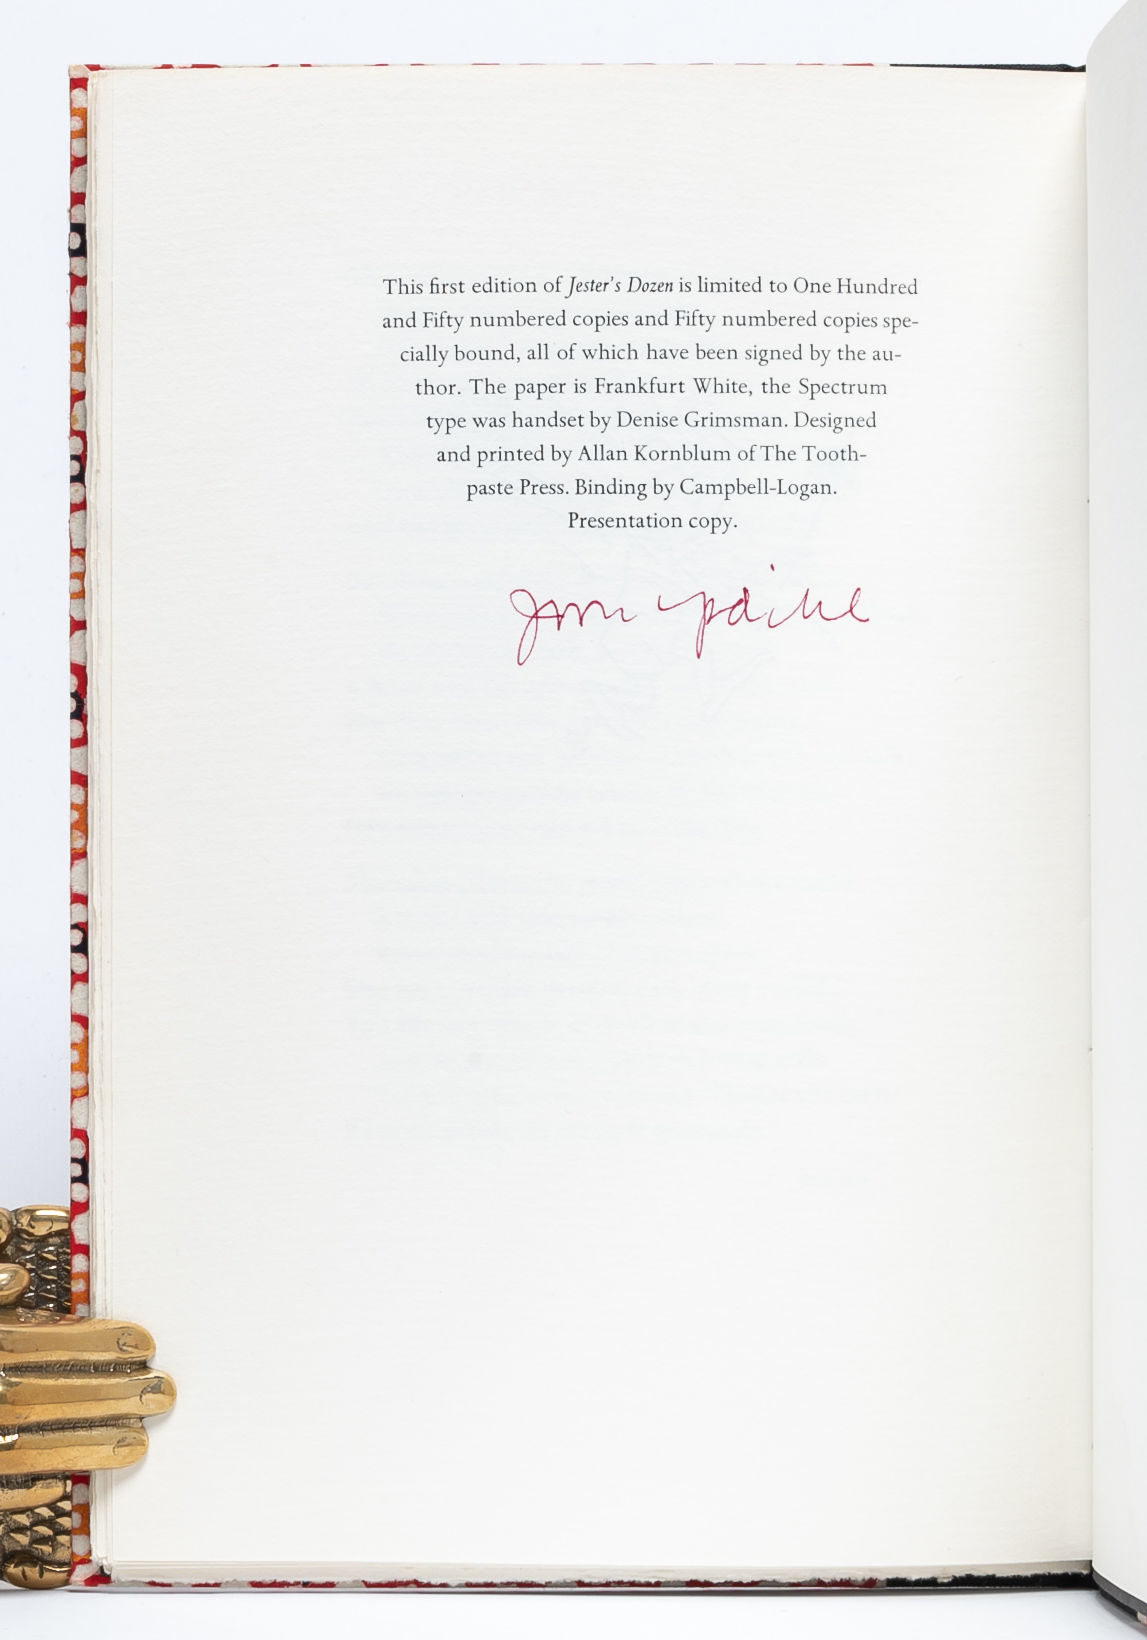 This first edition of Jester's Dozen is limited to One Hundred
and Fifty numbered copies and Fifty numbered copies spe-
cially bound, all of which have been signed by the au-
thor. The paper is Frankfurt White, the Spectrum
type was handset by Denise Grimsman. Designed
and printed by Allan Kornblum of The Tooth-
paste Press. Binding by Campbell-Logan.
Presentation copy.